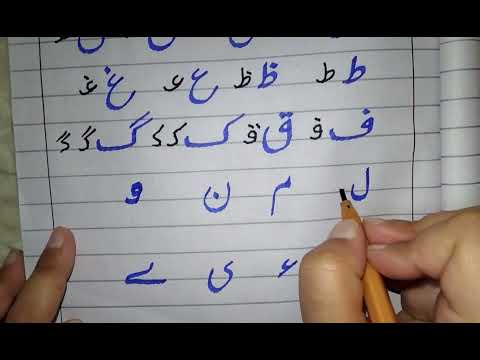 ط ط ظ ظ ع ع غ غ
ف ف ق ق ک ک ک گ گ گ
ل م ن و
ء ی ے